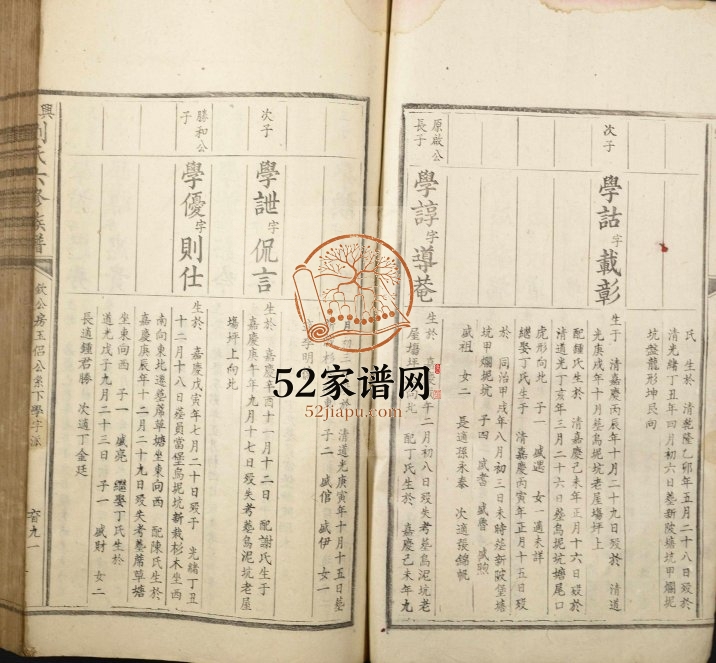 氏 生於 清乾隆乙卯年五月二十八日歿於
清光緒丁丑年四月初六日葬新陂塘坑甲爛坭
坑盤龍形坤艮向
次子
學詁字載彰
生于 清嘉慶丙辰年十月二十九日歿於 清道
光庚戌年十月葬烏坭坑老屋塲坪上
配鍾氏生於 清嘉慶己未年正月十六日歿於
清道光丁亥年三月二十六日葬烏坭坑塘尾口
虎形向北 子一 威遇 女一適未詳
繼娶丁氏生于 清嘉慶丙寅年正月十五日歿
於 同治甲戌年八月初三日未時葬新陂堡塘
坑甲爛坭坑 子四 威書 威魯 威煦
威祖 女二 長適孫永泰 次適張錦帆
原啟公
長子
學諄字導菴
生於 嘉慶 午二月初八日歿失考葬烏泥坑老
屋塲坪 向北 配丁氏生於 嘉慶己未年九
月初三 清道光庚寅年十月十五日葬
杉 子二 威倌 威伊 女一
適李明
次子
學詍字侃言
生於 嘉慶辛酉十一月十二日 配謝氏生于
嘉慶庚午年九月十七日歿失考葬烏泥坑老屋
塲坪上向北
勝和公
子
學優字則仕
生於 嘉慶戊寅年七月二十日歿于 光緒丁丑
十二月十八日葬員當堡烏坭坑新栽杉木坐西
南向東北遷葬蓆草塘坐東向西 配陳氏生於
嘉慶庚辰年十二月二十九日歿失考葬蓆草塘
坐東向西 子一 威亮 繼娶丁氏生於
道光戊子九月二十三日 子一 威財 女二
長適鍾君勝 次適丁金廷
興
劉氏六修族譜
欽公房玉侶公系下學字派
九一
52家谱网
52jiapu.com